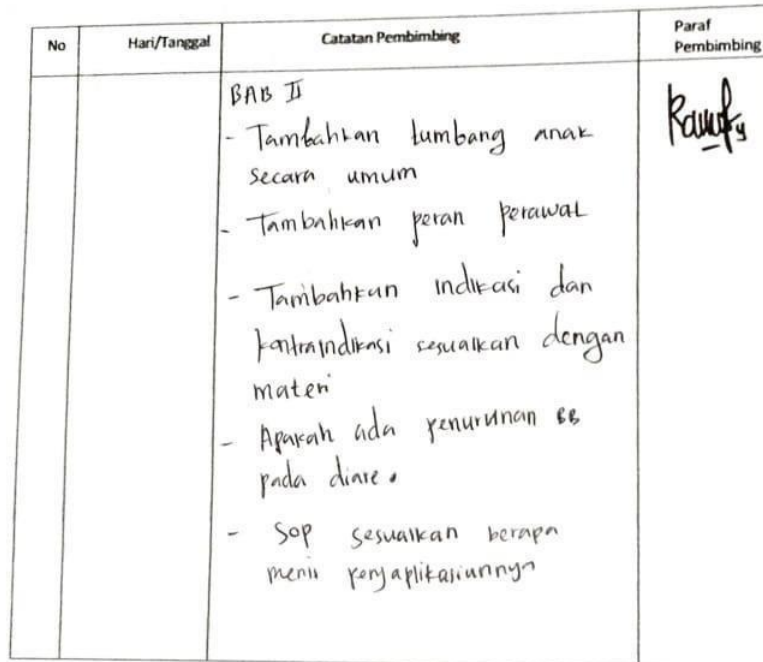 No Hari/Tanggal Catatan Pembimbing Paraf Pembimbing
BAB II
- Tambahkan tumbang anak
secara umum
- Tambahkan peran perawat
- Tambahkan indikasi dan
kontraindikasi sesuaikan dengan
materi
- Apakah ada penurunan BB
pada diare.
- Sop sesuaikan berapa
menit pengaplikasiannya